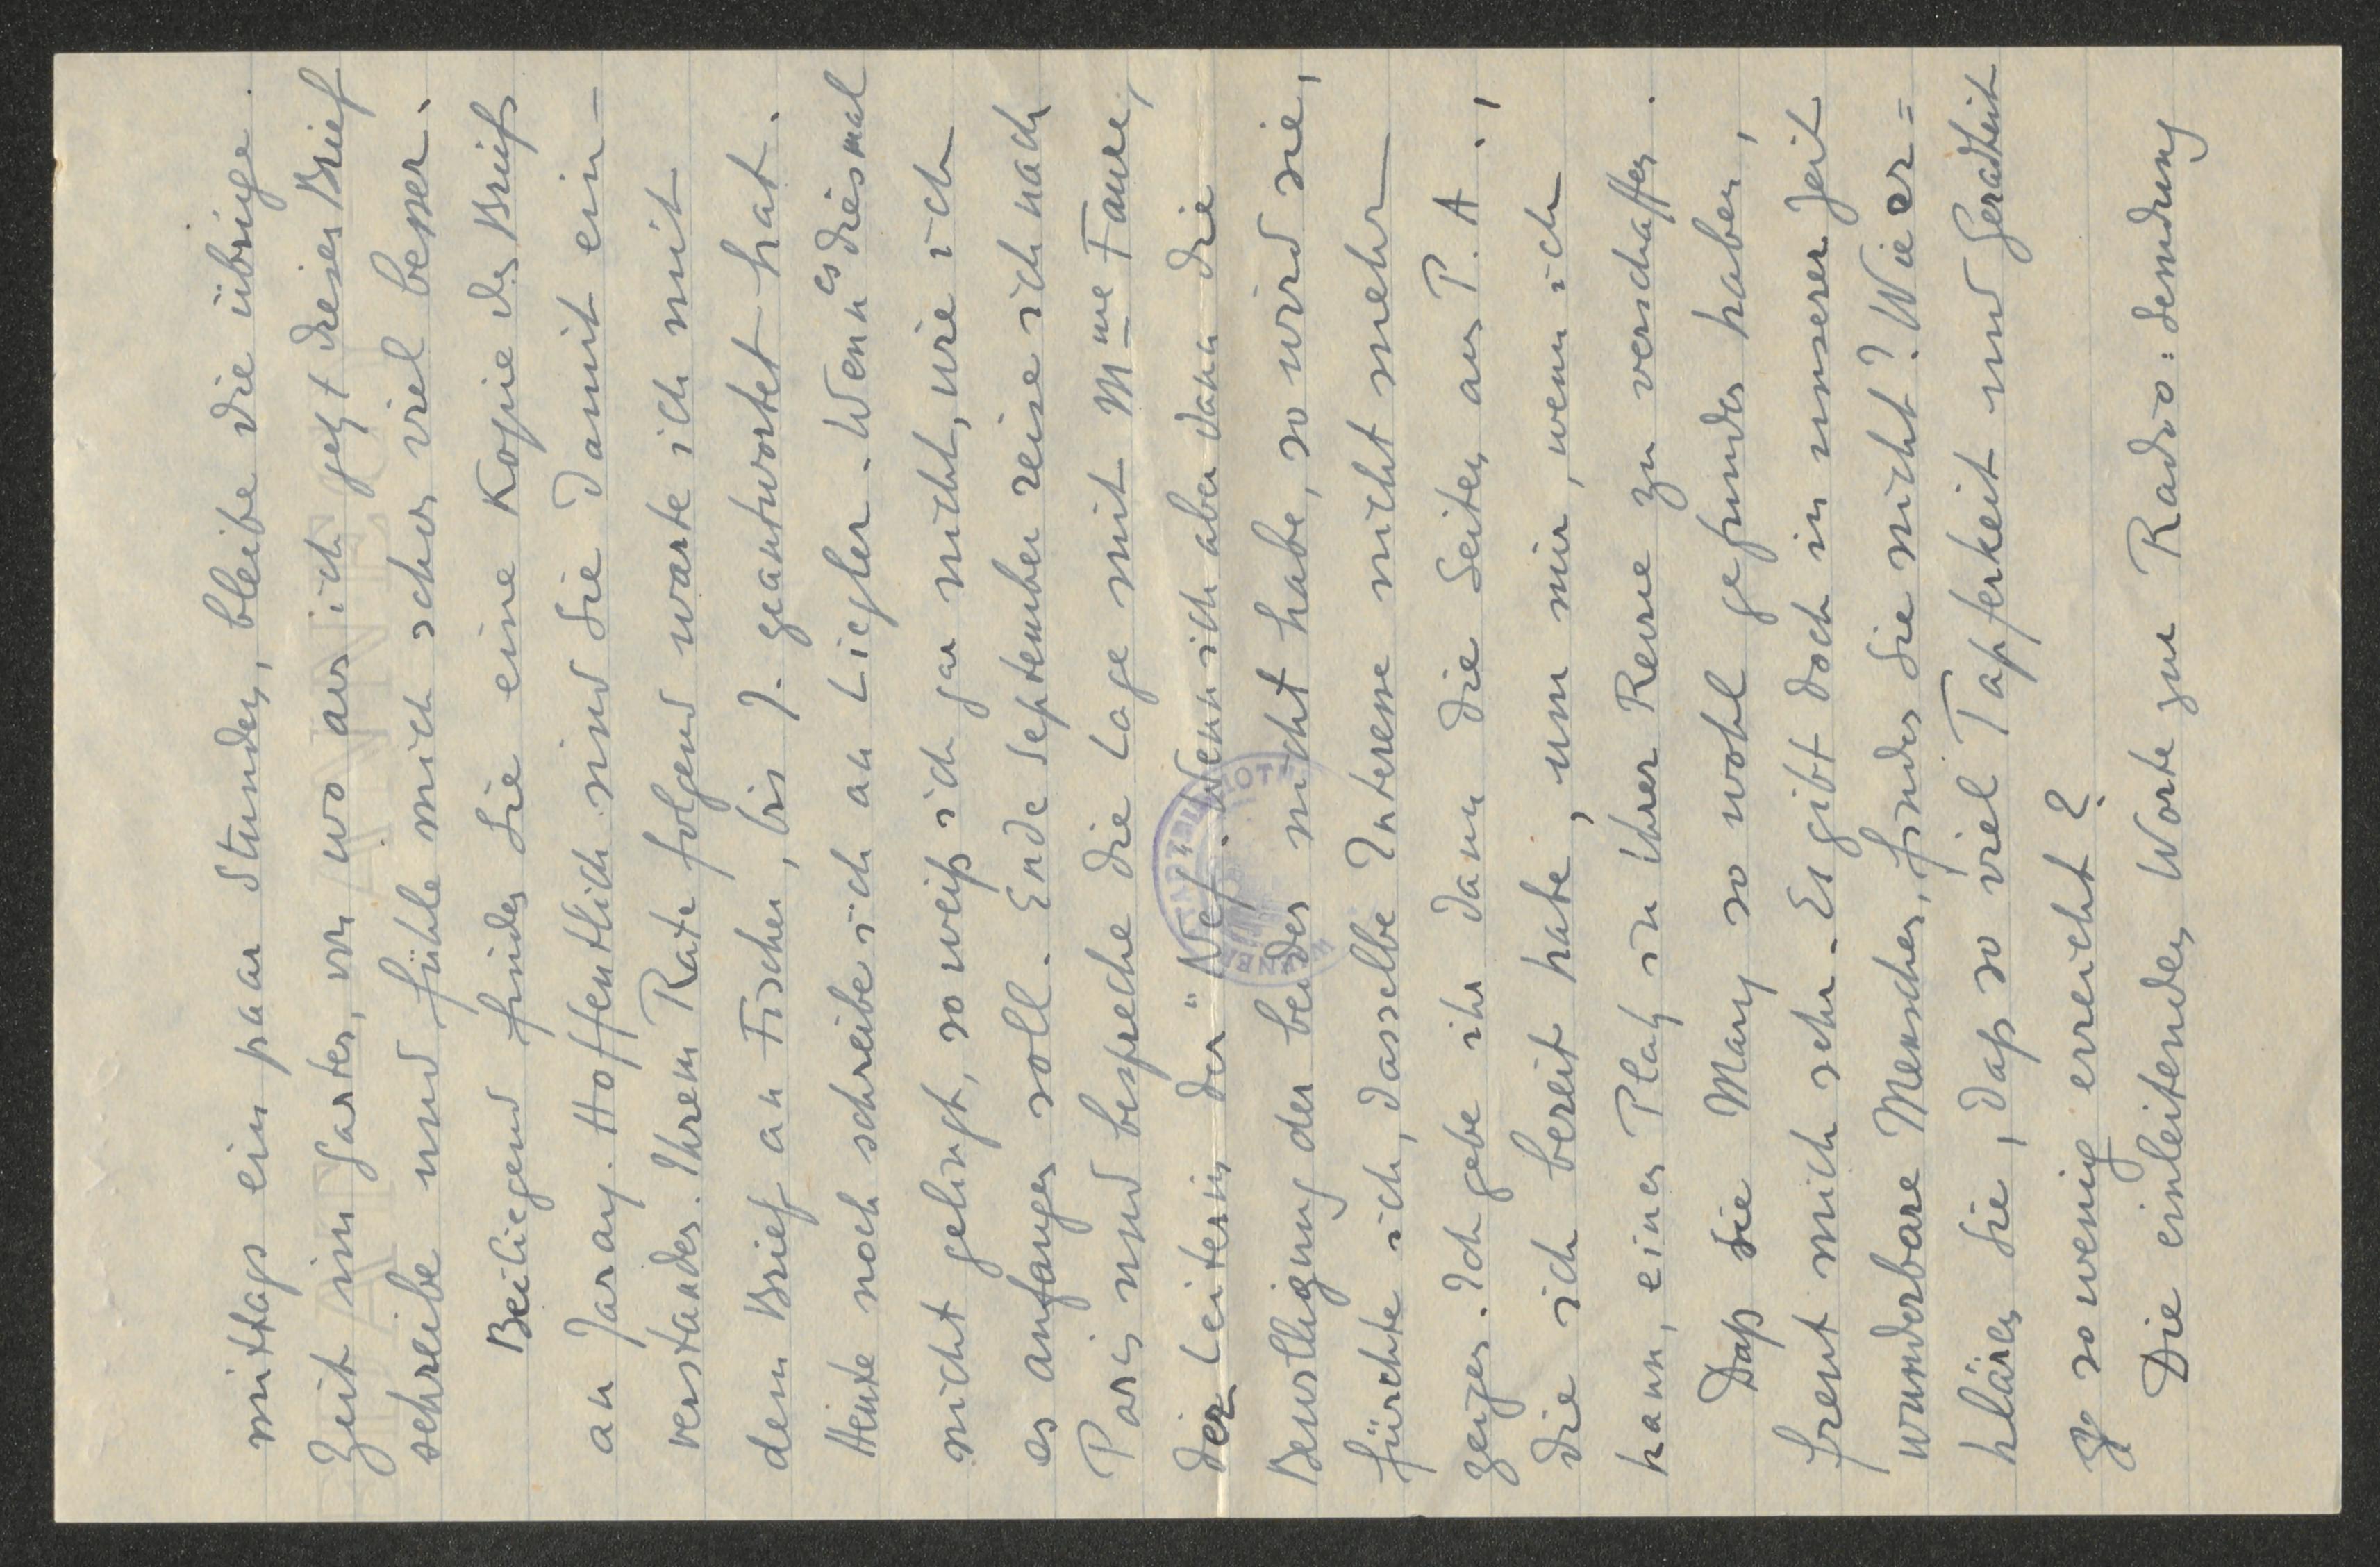 mittags ein paar Stunden, bleibe die übrige
Zeit im Garten, von wo aus ich jetzt diesen Brief
schreibe und fühle mich schon viel besser.
Beiliegend finden Sie eine Kopie des Briefs
an Jaray. Hoffentlich sind Sie damit ein-
verstanden. Ihrem Rate folgend warte ich mit
dem Brief an Fischer, bis J. geantwortet hat.
Heute noch schreibe ich an Liegler. Wenn es diesmal
nicht gelingt, so weiß ich gar nicht, wie ich
es anfangen soll. Ende September reise ich nach
Paris und bespreche die Lage mit Mme Faure,
der Leiterin der "Nef". Wenn ich aber dann die
Bewilligung der beiden nicht habe, so wird sie,
fürchte ich, dasselbe Interesse nicht mehr
zeigen. Ich gebe ihr dann die Seiten aus P. A.,
die ich bereit habe, um mir, wenn ich
kann, einen Platz in Ihrer Revue zu verschaffen.
Daß Sie Mary so wohl gefunden haben,
freut mich sehr. Es gibt doch in unserer Zeit
wunderbare Menschen, finden Sie nicht? Wie er=
klären Sie, daß so viel Tapferkeit und Geradheit
so wenig erreicht?
Die einleitenden Worte zur Radio=Sendung